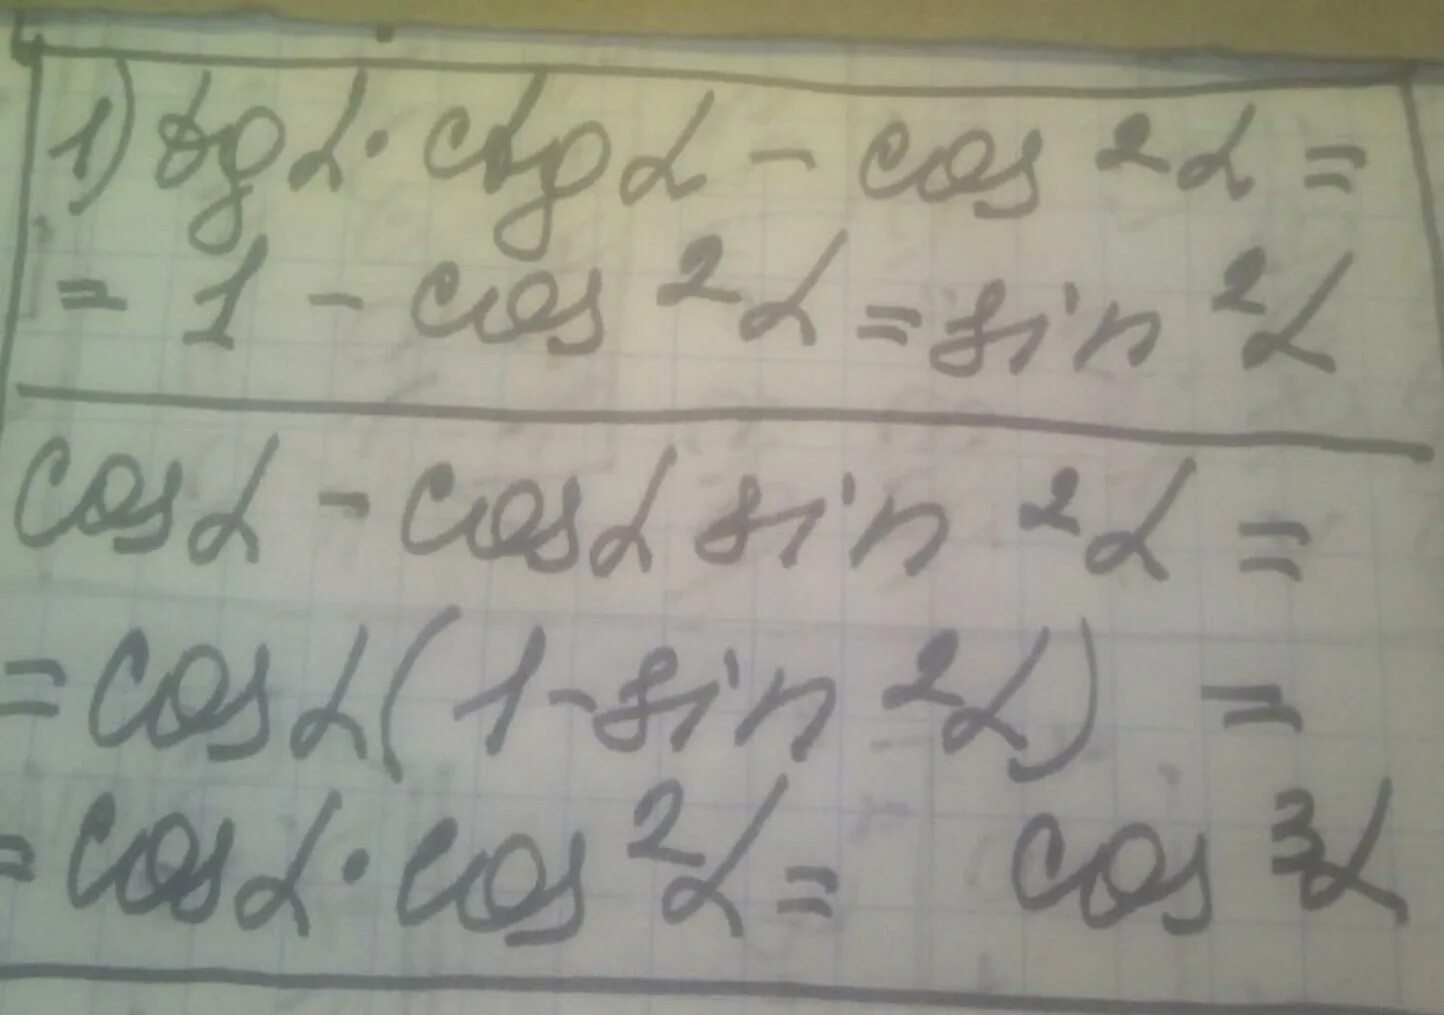 1) tgα · ctgα - cos²α =
= 1 - cos²α = sin²α
cosα - cosα sin²α =
= cosα(1 - sin²α) =
= cosα · cos²α = cos³α